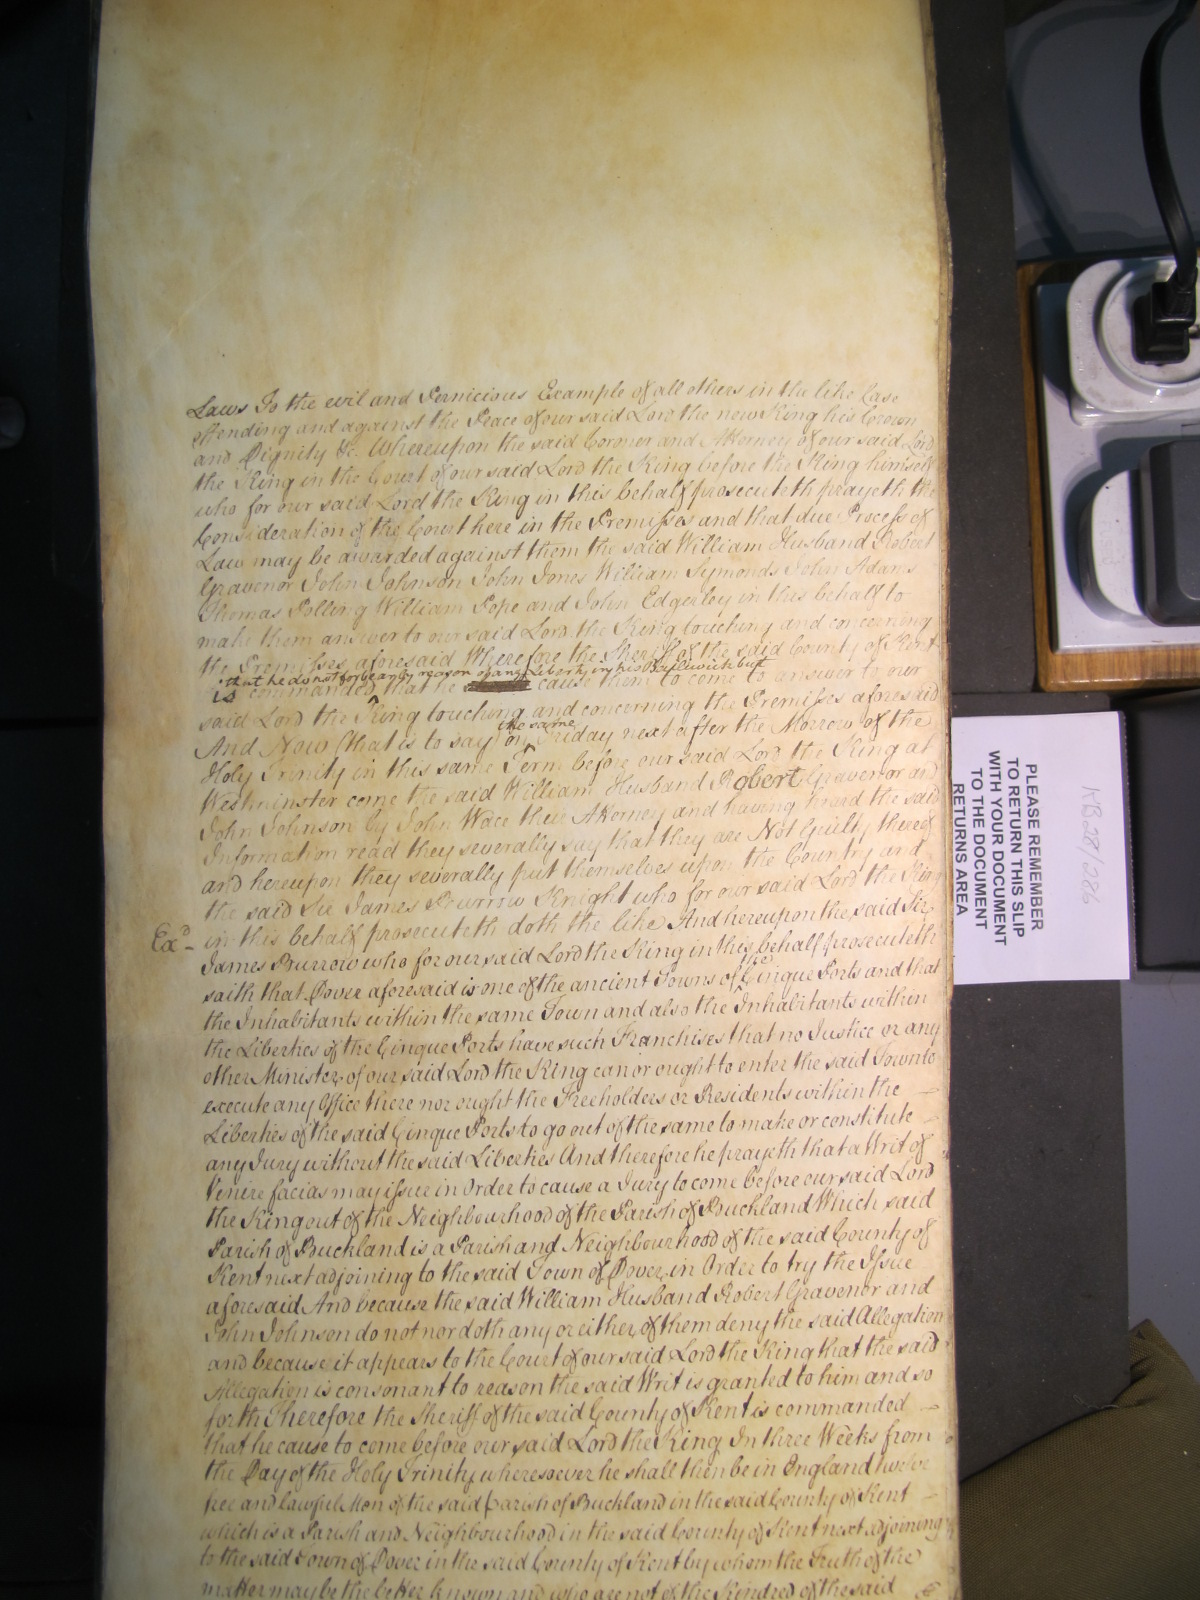 Laws To the evil and Pernicious Example of all others in the like Case
offending and against the Peace of our said Lord the now King his Crown
and Dignity &c. Whereupon the said Coroner and Attorney of our said Lord
the King in the Court of our said Lord the King before the King himself
who for our said Lord the King in this behalf prosecuteth prayeth the
Consideration of the Court here in the Premisses and that due Process of
Law may be awarded against them the said William Husband Robert
Gravenor John Johnson John Jones William Symonds John Adams
Thomas Polling William Pope and John Edgerley in this behalf to
make them answer to our said Lord the King touching and concerning
the Premisses aforesaid Wherefore the Sheriff of the said County of Kent
that he do not forbear by reason of any Liberty in his Bailiwick but
is commanded that he cause them to come to answer to our
said Lord the King touching and concerning the Premisses aforesaid
the same
And Now (that is to say) on Friday next after the Morrow of the
Holy Trinity in this same Term before our said Lord the King at
Westminster come the said William Husband Robert Gravenor and
John Johnson by John Wace their Attorney and having heard the said
Information read they severally say that they are Not Guilty thereof
and hereupon they severally put themselves upon the Country and
the said Sir James Burrow Knight who for our said Lord the King
Exd in this behalf prosecuteth doth the like And hereupon the said Sir
James Burrow who for our said Lord the King in this behalf prosecuteth
the
saith that Dover aforesaid is one of the ancient Towns of Cinque Ports and that
the Inhabitants within the same Town and also the Inhabitants within
the Liberties of the Cinque Ports have such Franchises that no Justice or any
other Minister of our said Lord the King can or ought to enter the said Town to
execute any Office there nor ought the Freeholders or Residents within the
Liberties of the said Cinque Ports to go out of the same to make or constitute
any Jury without the said Liberties And therefore he prayeth that a Writ of
Venire facias may issue in Order to cause a Jury to come before our said Lord
the King out of the Neighbourhood of the Parish of Buckland Which said
Parish of Buckland is a Parish and Neighbourhood of the said County of
Kent next adjoining to the said Town of Dover in Order to try the Issue
aforesaid And because the said William Husband Robert Gravenor and
John Johnson do not nor doth any or either of them deny the said Allegation
and because it appears to the Court of our said Lord the King that the said
Allegation is consonant to reason the said Writ is granted to him and so
forth Therefore the Sheriff of the said County of Kent is commanded
that he cause to come before our said Lord the King In three Weeks from
the Day of the Holy Trinity wheresoever he shall then be in England twelve
free and lawful Men of the said Parish of Buckland in the said County of Kent
which is a Parish and Neighbourhood in the said County of Kent next adjoining
to the said Town of Dover in the said County of Kent by whom the Truth of the
matter may be the better known and who are not of the Kindred of the said
PLEASE REMEMBER
TO RETURN THIS SLIP
WITH YOUR DOCUMENT
TO THE DOCUMENT
RETURNS AREA
KB 28/286